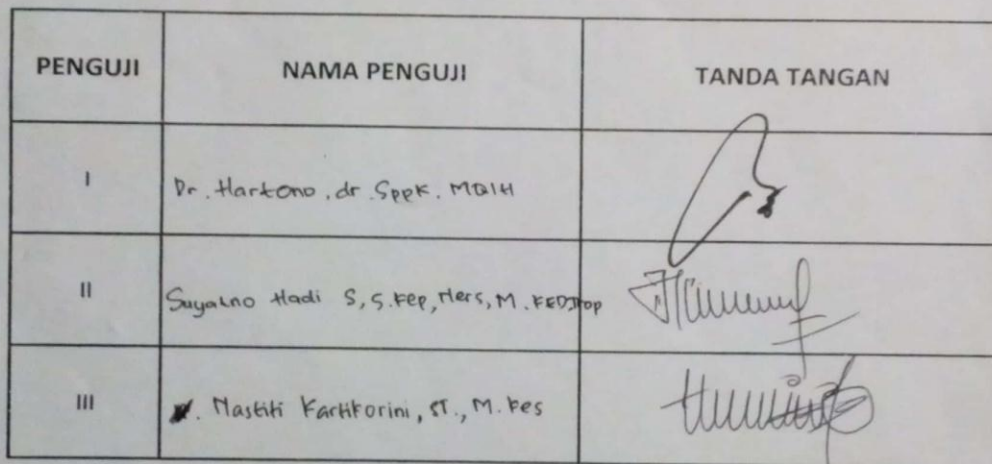 PENGUJI NAMA PENGUJI TANDA TANGAN
I Dr. Hartono, dr. SppK. MQIH
II Suyatno Hadi S, S.Kep, Ners, M.
III Nastiti Kartikorini, ST., M. Kes